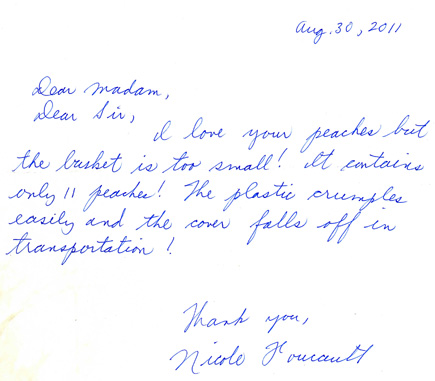 Aug. 30, 2011
Dear Madam,
Dear Sir,
I love your peaches but
the basket is too small! It contains
only 11 peaches! The plastic crumples
easily and the cover falls off in
transportation!
Thank you,
Nicole Foucault